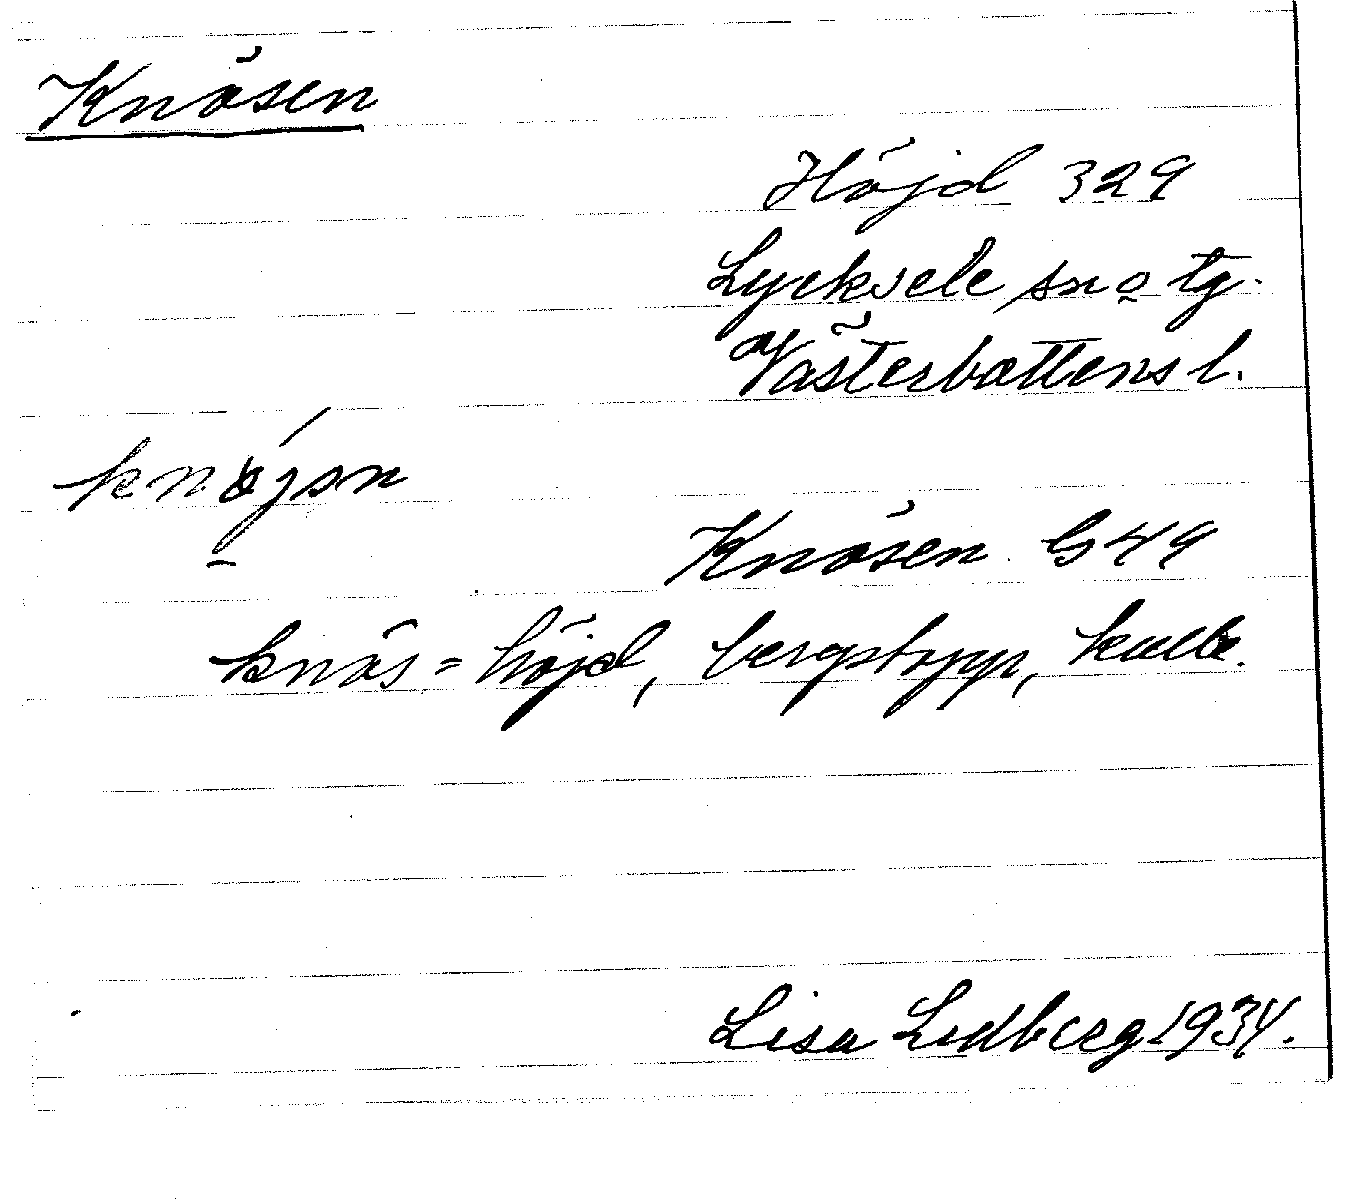 Knösen
Höjd 329
Lycksele sn o tg.
Västerbottens l.
Knösen G49
knös = höjd, bergstopp, kulle.
Lisa Lidberg 1934.